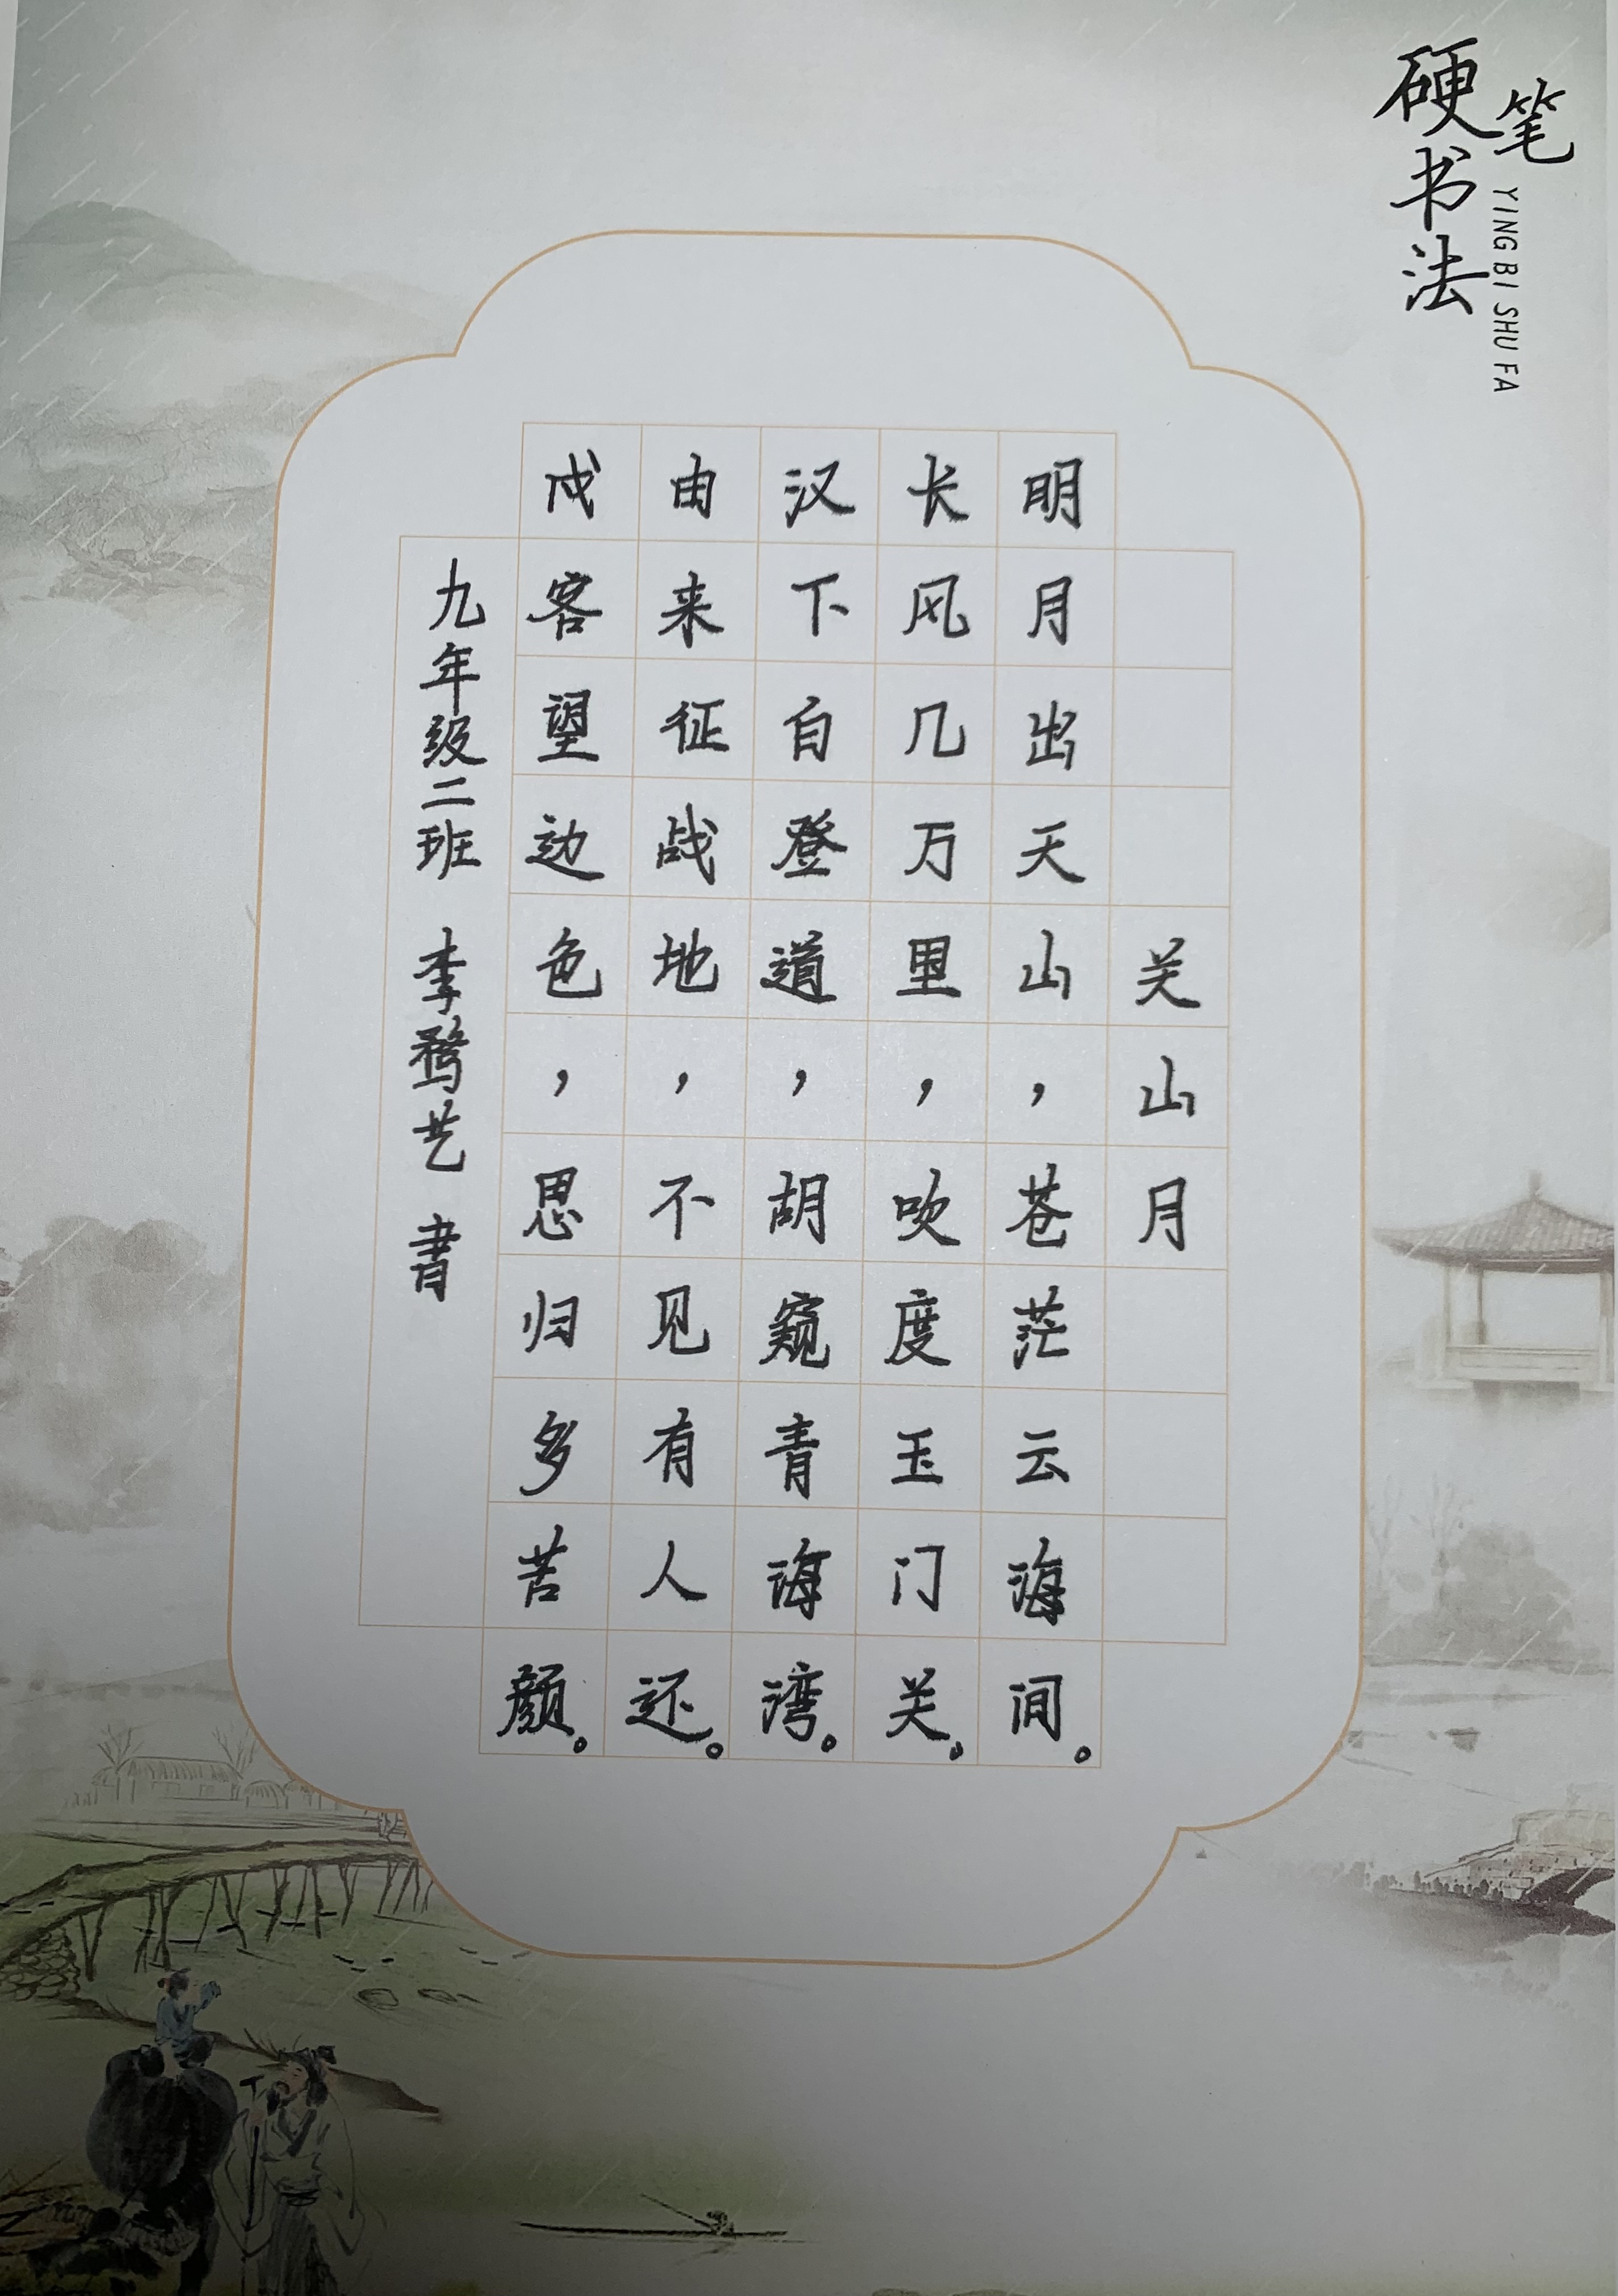 硬笔书法
YING BI SHU FA
关山月
明月出天山，苍茫云海间。
长风几万里，吹度玉门关。
汉下白登道，胡窥青海湾。
由来征战地，不见有人还。
戍客望边色，思归多苦颜。
九年级二班 李骛艺 書